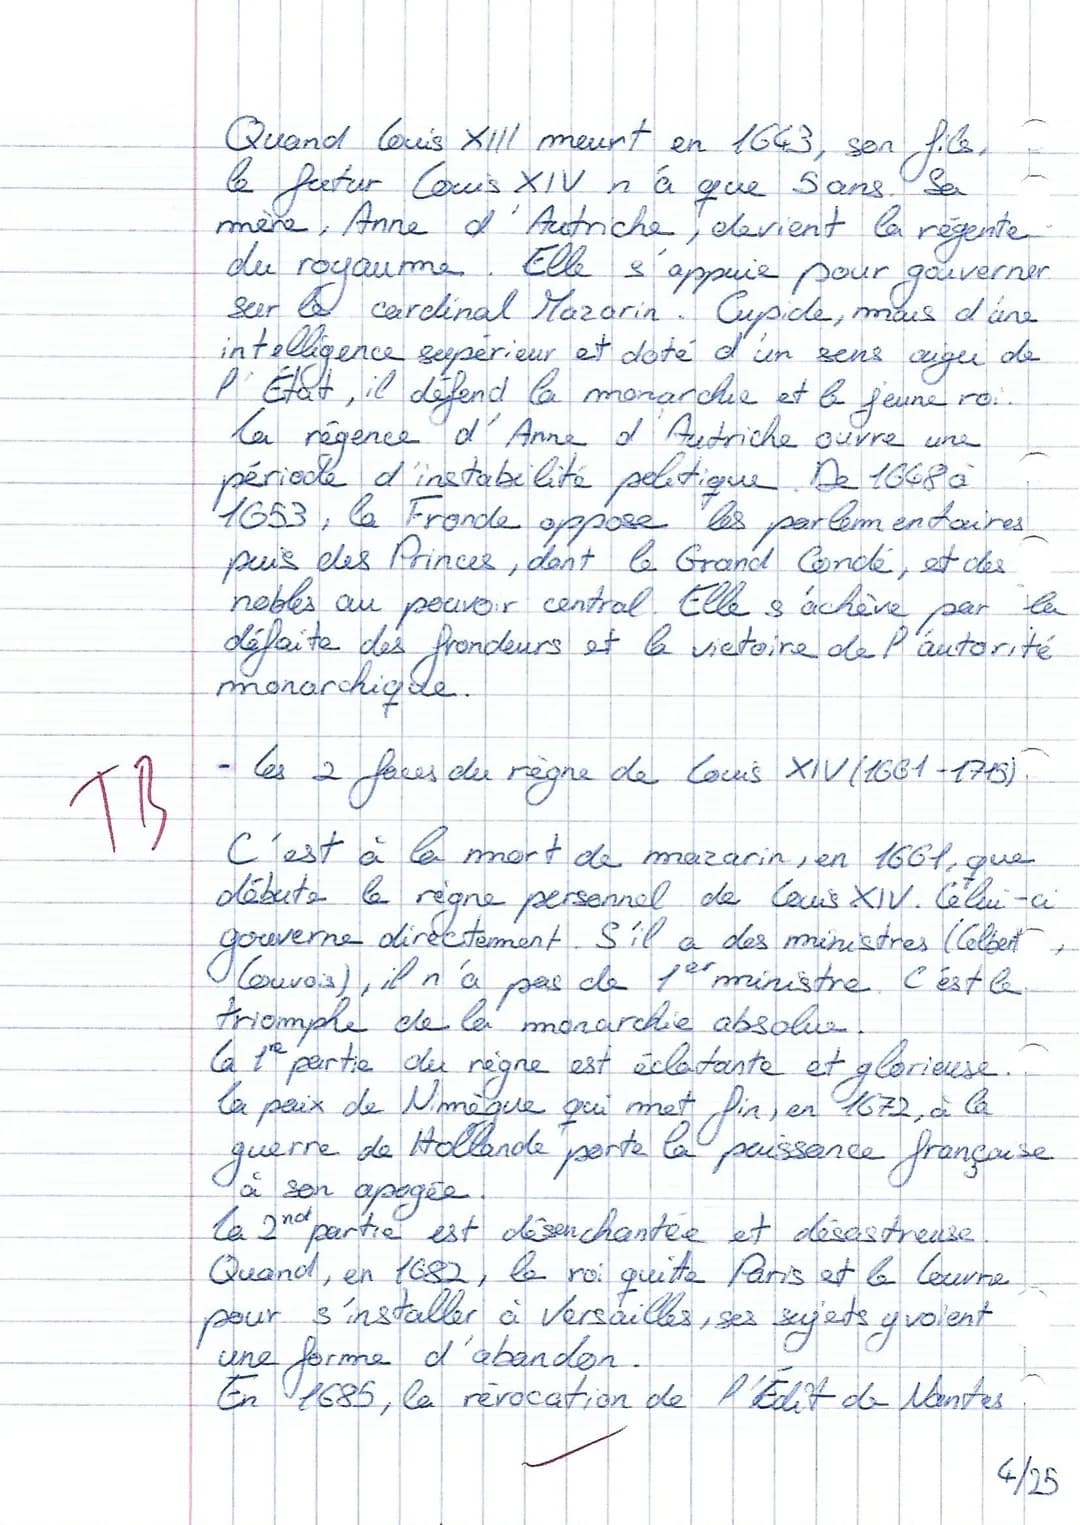 Quand Louis XIII meurt en 1643, son fils,
le futur Louis XIV n'a que 5 ans. Sa
mère, Anne d'Autriche, devient la régente
du royaume. Elle s'appuie pour gouverner
sur le cardinal Mazarin. Cupide, mais d'une
intelligence supérieur et doté d'un sens aigu de
l'État, il défend la monarchie et le jeune roi.
La régence d'Anne d'Autriche ouvre une
période d'instabilité politique. De 1648 à
1653, la Fronde oppose les parlementaires
puis des Princes, dont le Grand Condé, et des
nobles au pouvoir central. Elle s'achève par la
défaite des frondeurs et la victoire de l'autorité
monarchique.
TB
- Les 2 faces du règne de Louis XIV (1661-1715).
C'est à la mort de mazarin, en 1661, que
débute le règne personnel de Louis XIV. Celui-ci
gouverne directement. S'il a des ministres (Colbert,
Louvois), il n'a pas de 1er ministre. C'est le
triomphe de la monarchie absolue.
La 1re partie du règne est éclatante et glorieuse.
La paix de Nimègue qui met fin, en 1672, à la
guerre de Hollande porte la puissance française
à son apogée.
La 2nd partie est désenchantée et désastreuse.
Quand, en 1682, le roi quitte Paris et le Louvre
pour s'installer à Versailles, ses sujets y voient
une forme d'abandon.
En 1685, la révocation de l'Édit de Nantes
4/25